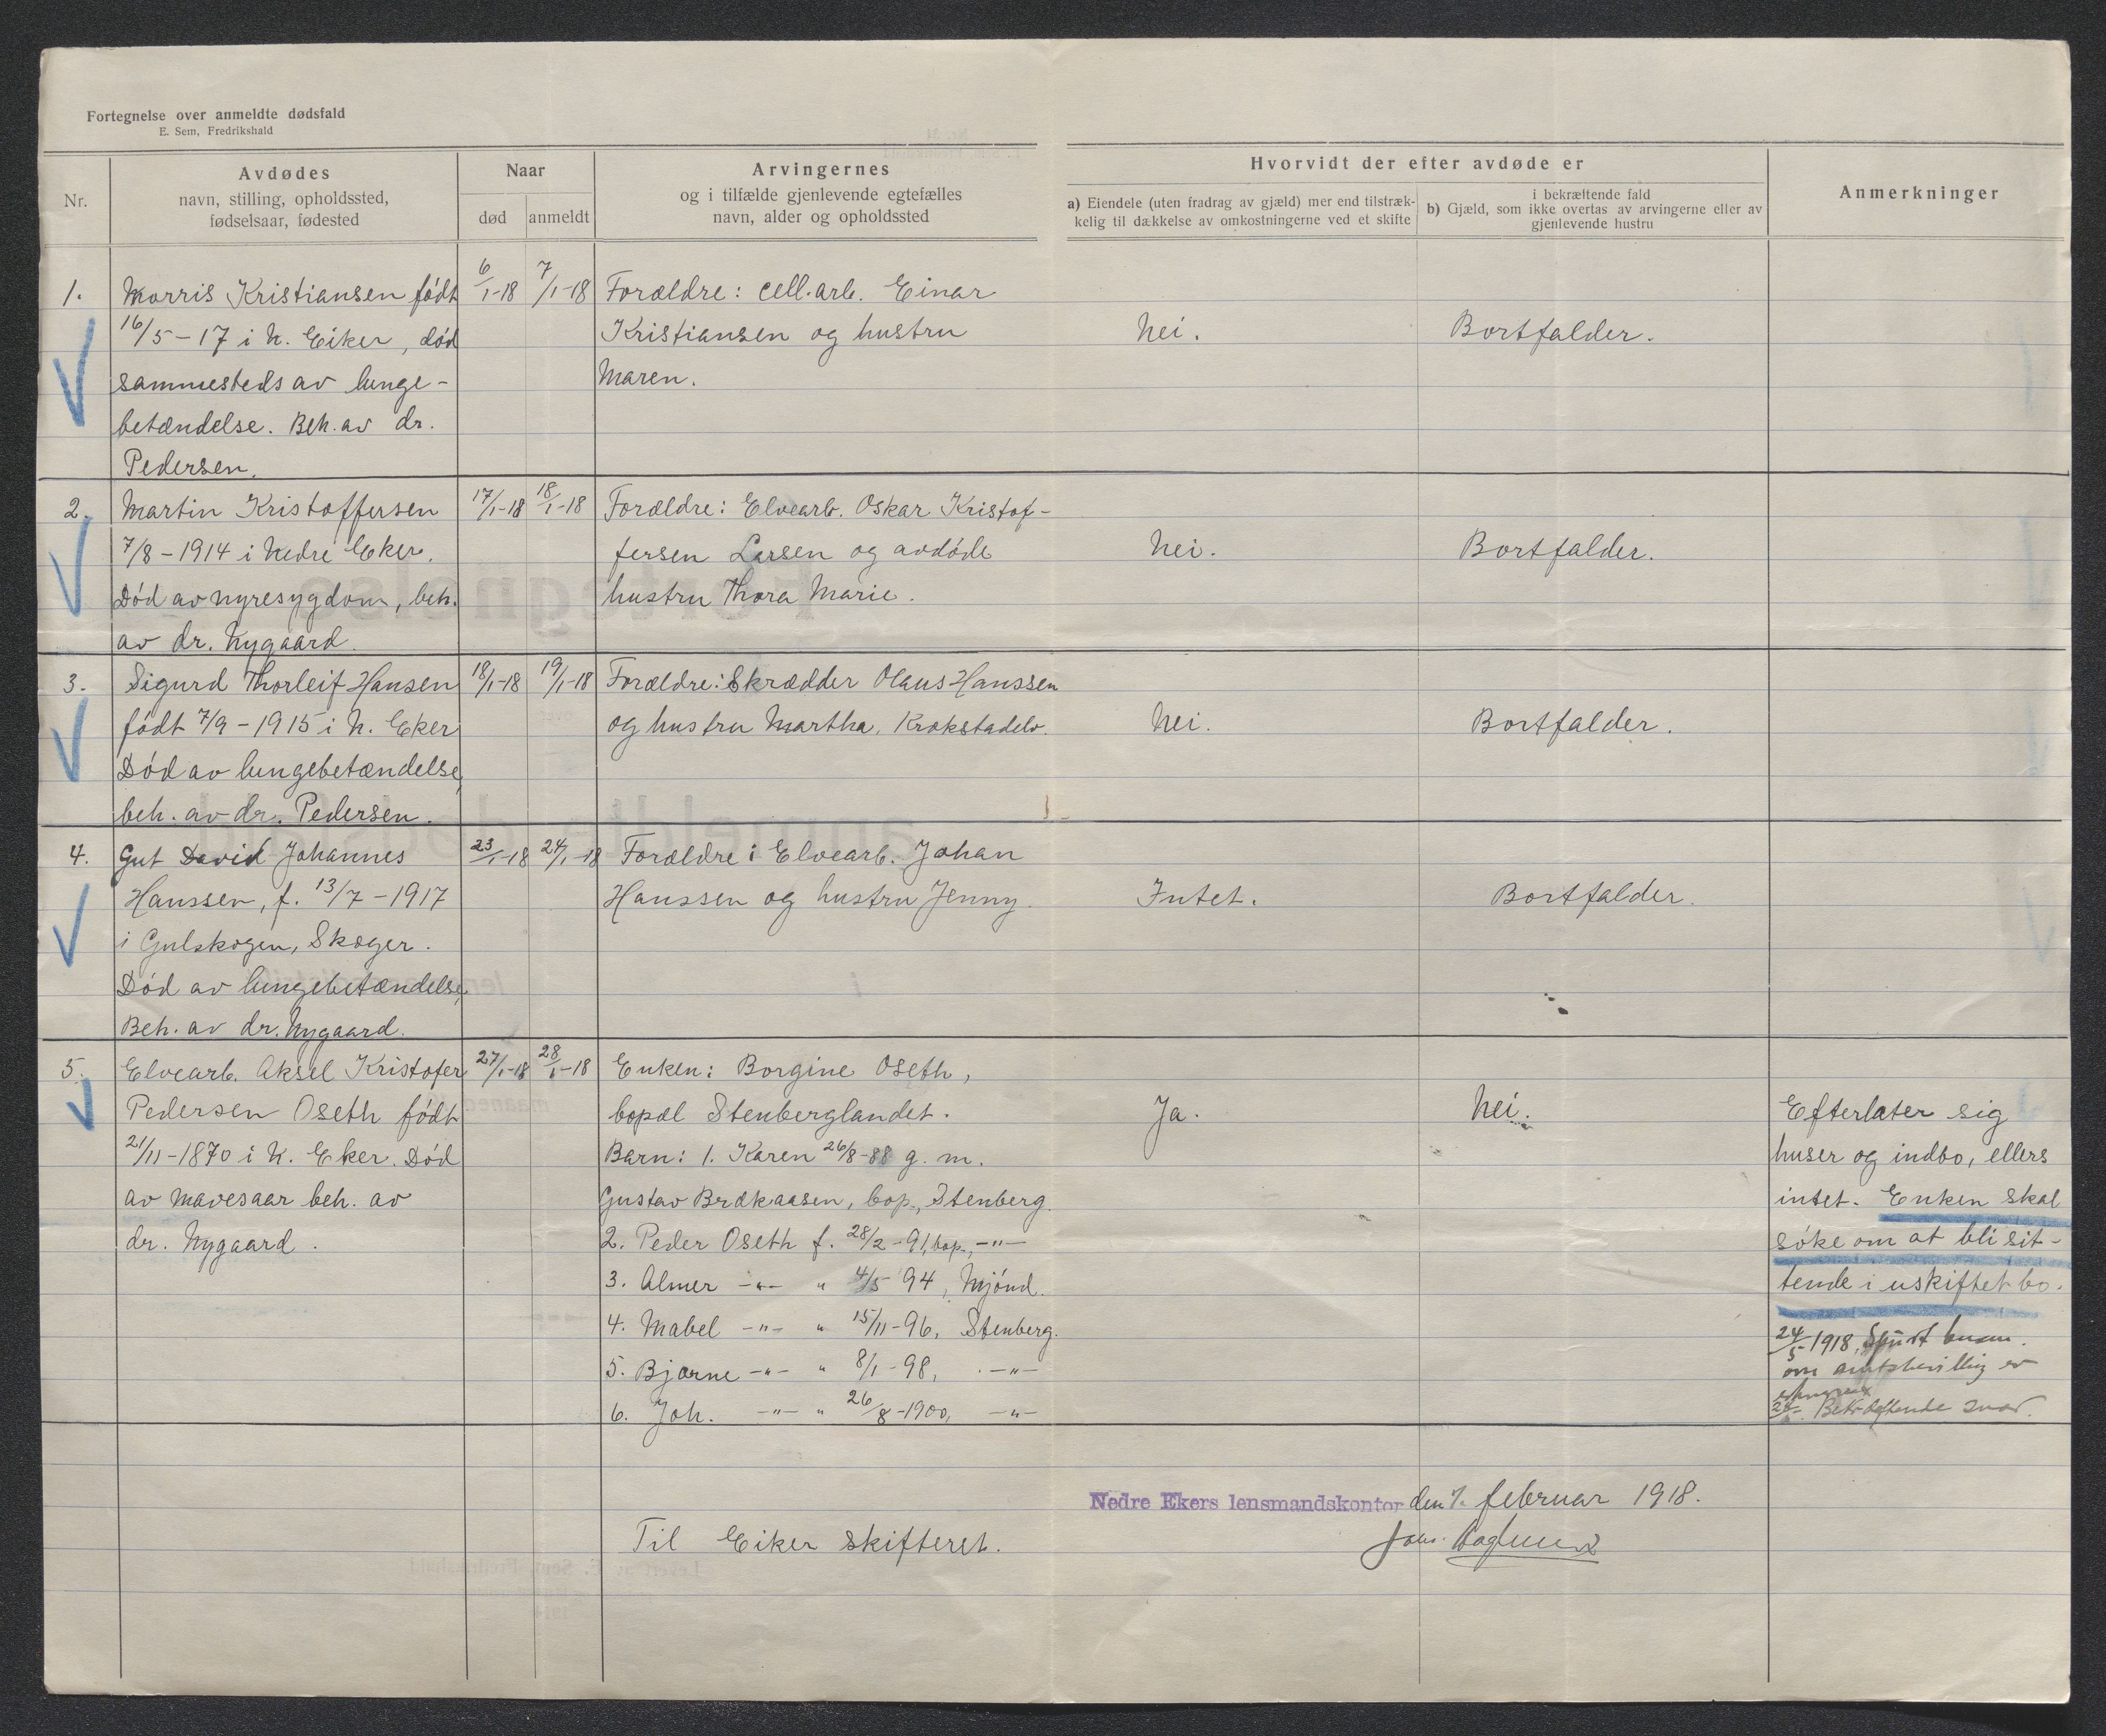 Fortegnelse over anmeldte dødsfald
E. Sem, Fredrikshald
Nr.
Avdødes
navn, stilling, opholdssted,
fødselsaar, fødested
Naar
død
anmeldt
Arvingernes
og i tilfælde gjenlevende egtefælles
navn, alder og opholdssted
Hvorvidt der efter avdøde er
a) Eiendele (uten fradrag av gjæld) mer end tilstræk-
kelig til dækkelse av omkostningerne ved et skifte
i bekræftende fald
b) Gjæld, som ikke overtas av arvingerne eller av
gjenlevende hustru
Anmerkninger
1. Morris Kristiansen født 6/1-18 7/1-18 Forældre: cell.arb. Einar
16/5-17 i N. Eiker, død Kristiansen og hustru Nei. Bortfalder.
sammesteds av lunge- Maren.
betændelse. Beh. av dr.
Pedersen.
2. Martin Kristoffersen 17/1-18 18/1-18 Forældre: Elvearb. Oskar Kristof-
7/8-1914 i Nedre Eker. fersen Larsen og avdøde Nei. Bortfalder.
Død av nyresygdom, beh. hustru Thora Marie.
av dr. Nygaard.
3. Sigurd Thorleif Hansen 18/1-18 19/1-18 Forældre: Skrædder Olaus Hanssen
født 7/9-1915 i N. Eker og hustru Martha, Krokstadelv. Nei. Bortfalder.
Død av lungebetændelse,
beh. av dr. Pedersen.
4. Gut David Johannes 23/1-18 24/1-18 Forældre: Elvearb. Johan
Hanssen, f. 13/7-1917 Hanssen og hustru Jenny. Intet. Bortfalder.
i Gulskogen, Skoger.
Død av lungebetændelse,
Beh. av dr. Nygaard.
5. Elvearb. Aksel Kristofer 27/1-18 28/1-18 Enken: Borgine Oseth,
Pedersen Oseth født bopæl Stenberglandet. Ja. Nei. Efterlater sig
21/11-1870 i N. Eker. Død Barn: 1. Karen 26/8-88 g. m. huser og indbo, ellers
av mavesaar beh. av Gustav Brækaasen, bop., Stenberg. intet. Enken skal
dr. Nygaard. 2. Peder Oseth f. 28/2-91, bop., -"- søke om at bli sit-
3. Almer -"- " 4/5 94, Mjønd. tende i uskiftet bo.
4. Mabel -"- " 15/11-96, Stenberg.
24/5 1918, Spurt
5. Bjarne -"- " 8/1-98, -"-
om amtsbevilling er
6. Joh. -"- " 26/8-1900, -"-
Bekræftende svar.
Nedre Ekers lensmandskontor den 7. februar 1918.
Til Eiker skifteret.